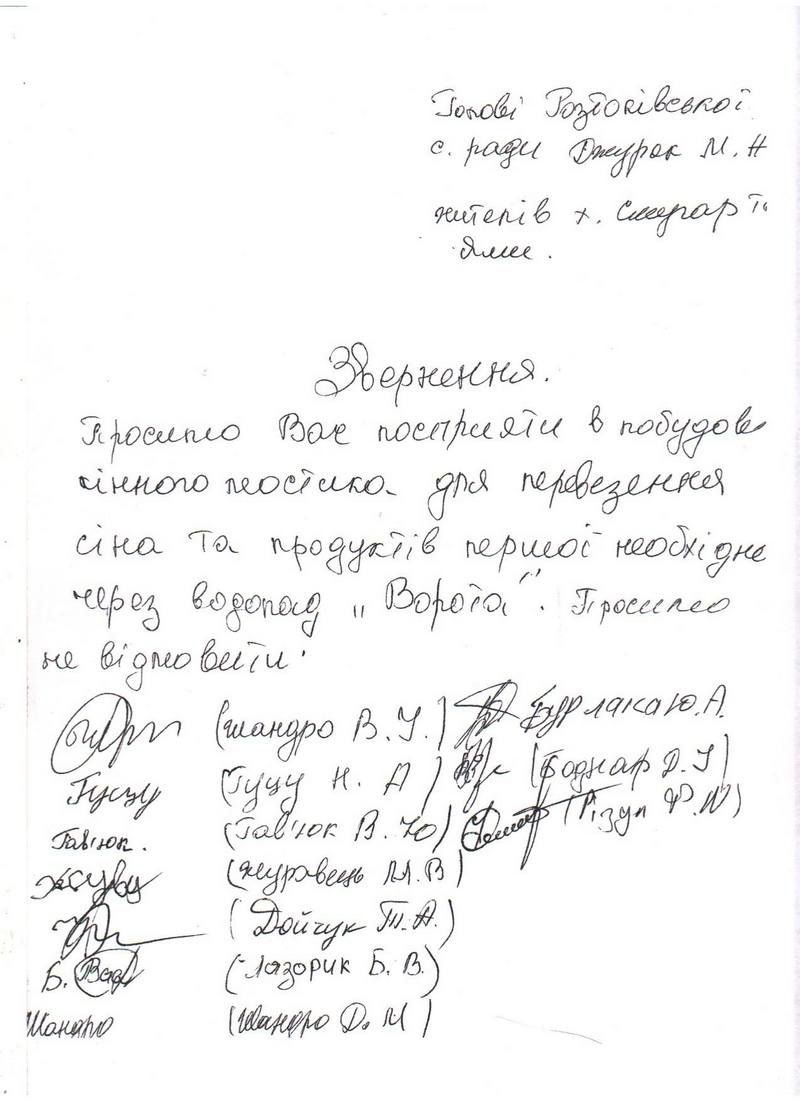 Голові Розтоківської
с. ради Джурак М. Н
жителів х. Смугар Та
Ями.
Звернення.
Просимо Вас посприяти в побудов
кінного мостика для перевезення
сіна та продуктів першої необхідно
через водопад „Ворота". Просимо
не відмовити.
(Шандро В. І.) Бурлака Ю. А.
Гуцу (Гуцу Н. А) (Боднар Д. І)
Гав'юк. (Гав'юк В. Ю) (Різун Ф. И)
(Журавель М. В)
(Дойчук Т. А.)
Б. (Лазорик Б. В.)
Шандро (Шандро Д. М)